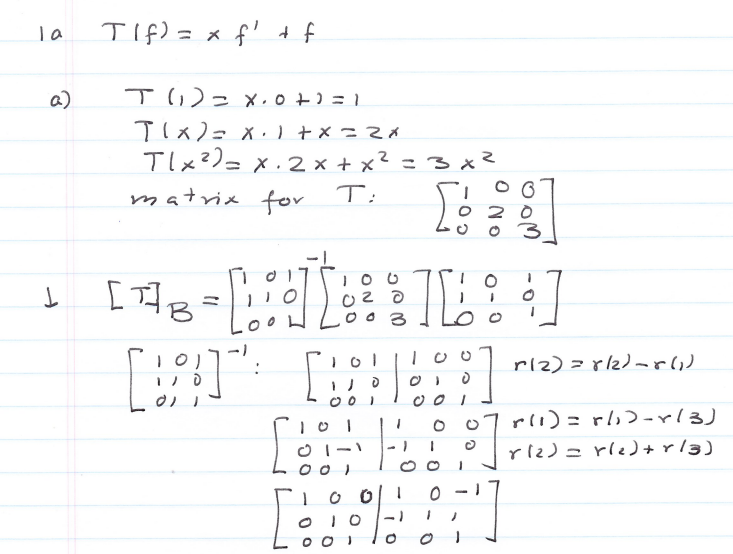 1a T(f) = x f' + f
a) T(1) = x·0+1 = 1
T(x) = x·1 + x = 2x
T(x²) = x·2x + x² = 3x²
matrix for T: [1 0 0; 0 2 0; 0 0 3]
b [T]B = [1 0 1; 1 1 0; 0 0 1]⁻¹ [1 0 0; 0 2 0; 0 0 3] [1 0 1; 1 1 0; 0 0 1]
[1 0 1; 1 1 0; 0 1 1]⁻¹: [1 0 1 | 1 0 0; 1 1 0 | 0 1 0; 0 0 1 | 0 0 1] r(2) = r(2) - r(1)
[1 0 1 | 1 0 0; 0 1 -1 | -1 1 0; 0 0 1 | 0 0 1] r(1) = r(1) - r(3)
r(2) = r(2) + r(3)
[1 0 0 | 1 0 -1; 0 1 0 | -1 1 1; 0 0 1 | 0 0 1]